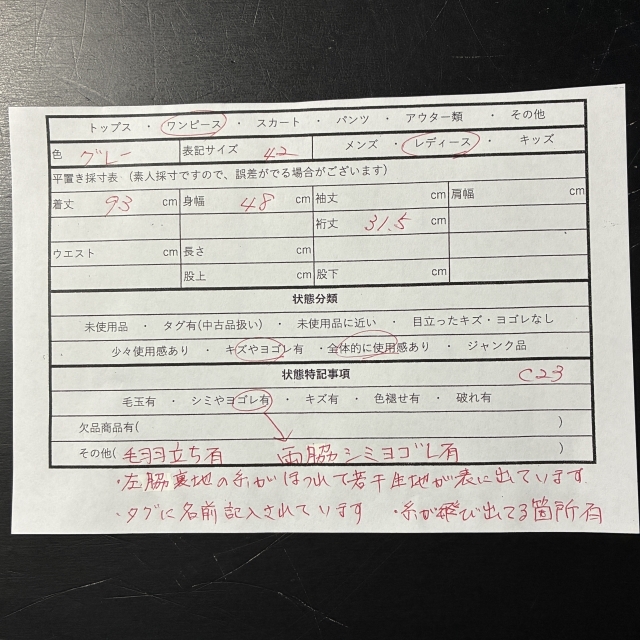 トップス ・ ワンピース ・ スカート ・ パンツ ・ アウター類 ・ その他
色 グレー 表記サイズ 42 メンズ ・ レディース ・ キッズ
平置き採寸表（素人採寸ですので、誤差がでる場合がございます）
着丈 93 cm 身幅 48 cm 袖丈 cm 肩幅 cm
裄丈 31.5 cm
ウエスト cm 長さ cm
股上 cm 股下 cm
状態分類
未使用品 ・ タグ有(中古品扱い) ・ 未使用品に近い ・ 目立ったキズ・ヨゴレなし
少々使用感あり ・ キズやヨゴレ有 ・ 全体的に使用感あり ・ ジャンク品
状態特記事項 C23
毛玉有 ・ シミやヨゴレ有 ・ キズ有 ・ 色褪せ有 ・ 破れ有
欠品商品有( )
その他( 毛羽立ち有 両脇シミヨゴレ有 )
・左脇裏地の糸がほつれて若干生地が表に出ています.
・タグに名前記入されています ・糸が飛び出てる箇所有